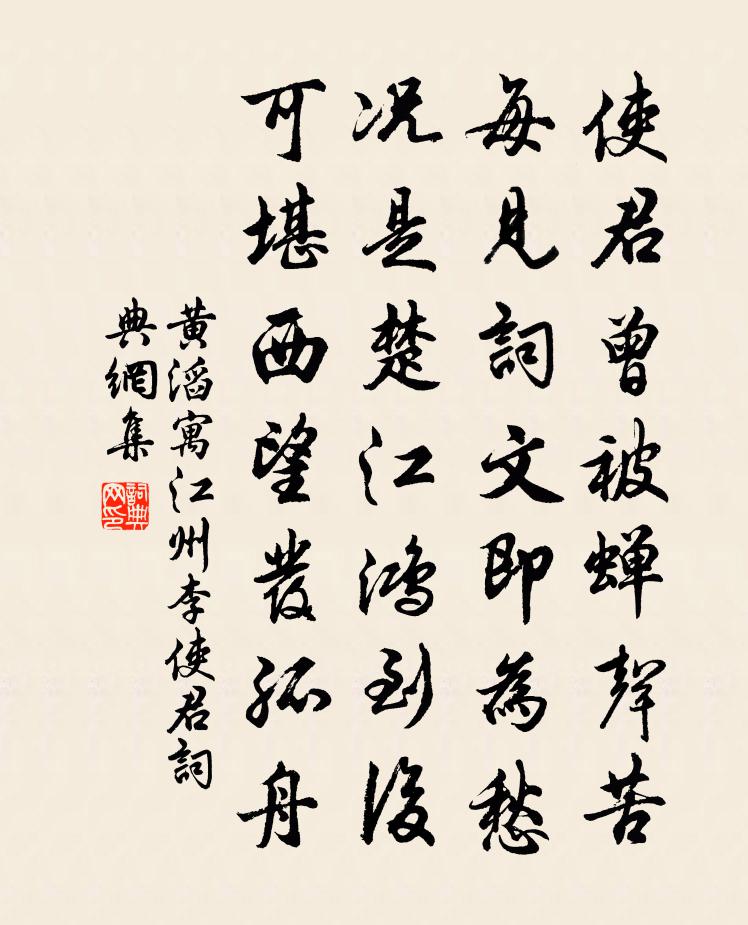 使君曾被蝉聲苦
每見詞文即為愁
况是楚江鸿到後
可堪西望發孤舟
黄滔寓江州李使君詞
典網集
詞典
网印